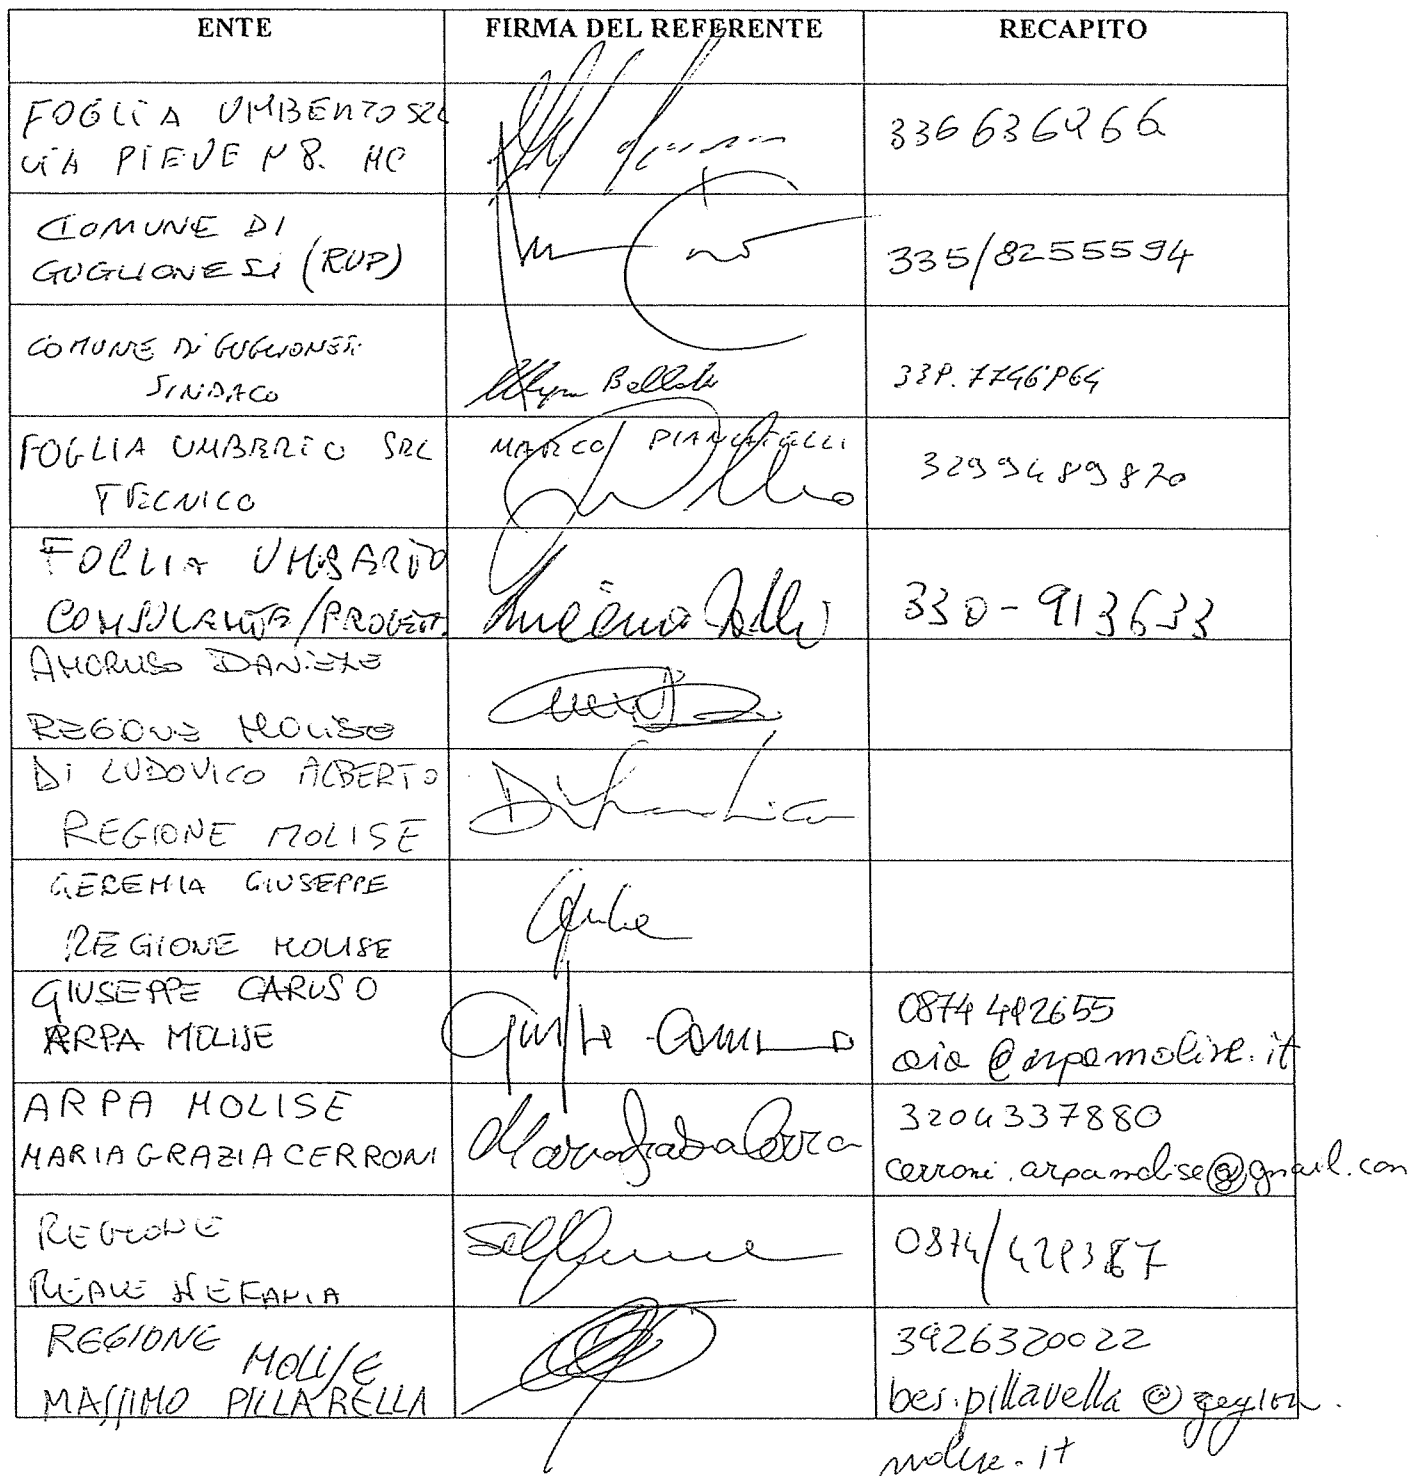 ENTE FIRMA DEL REFERENTE RECAPITO
FOGLIA UMBERTO SRL
VIA PIEVE N 8. MC
336636266
COMUNE DI
GUGLIONESI (RUP)
335/8255594
COMUNE DI GUGLIONESI
SINDACO
Bellotti
FOGLIA UMBERTO SRL
TECNICO
MARCO PIANCATELLI
3299489820
FOGLIA UMBERTO
CONSULENTE/PROGETT.
330-913633
AMORUSO DANIELE
REGIONE MOLISE
DI LUDOVICO ALBERTO
REGIONE MOLISE
GEREMIA GIUSEPPE
REGIONE MOLISE
GIUSEPPE CARUSO
ARPA MOLISE
0874 492655
aia@arpamolise.it
ARPA MOLISE
MARIAGRAZIA CERRONI
3204337880
cerroni.arpamolise@gmail.com
REGIONE
REALE STEFANIA
0874/429387
REGIONE MOLISE
MASSIMO PILLARELLA
3926320022